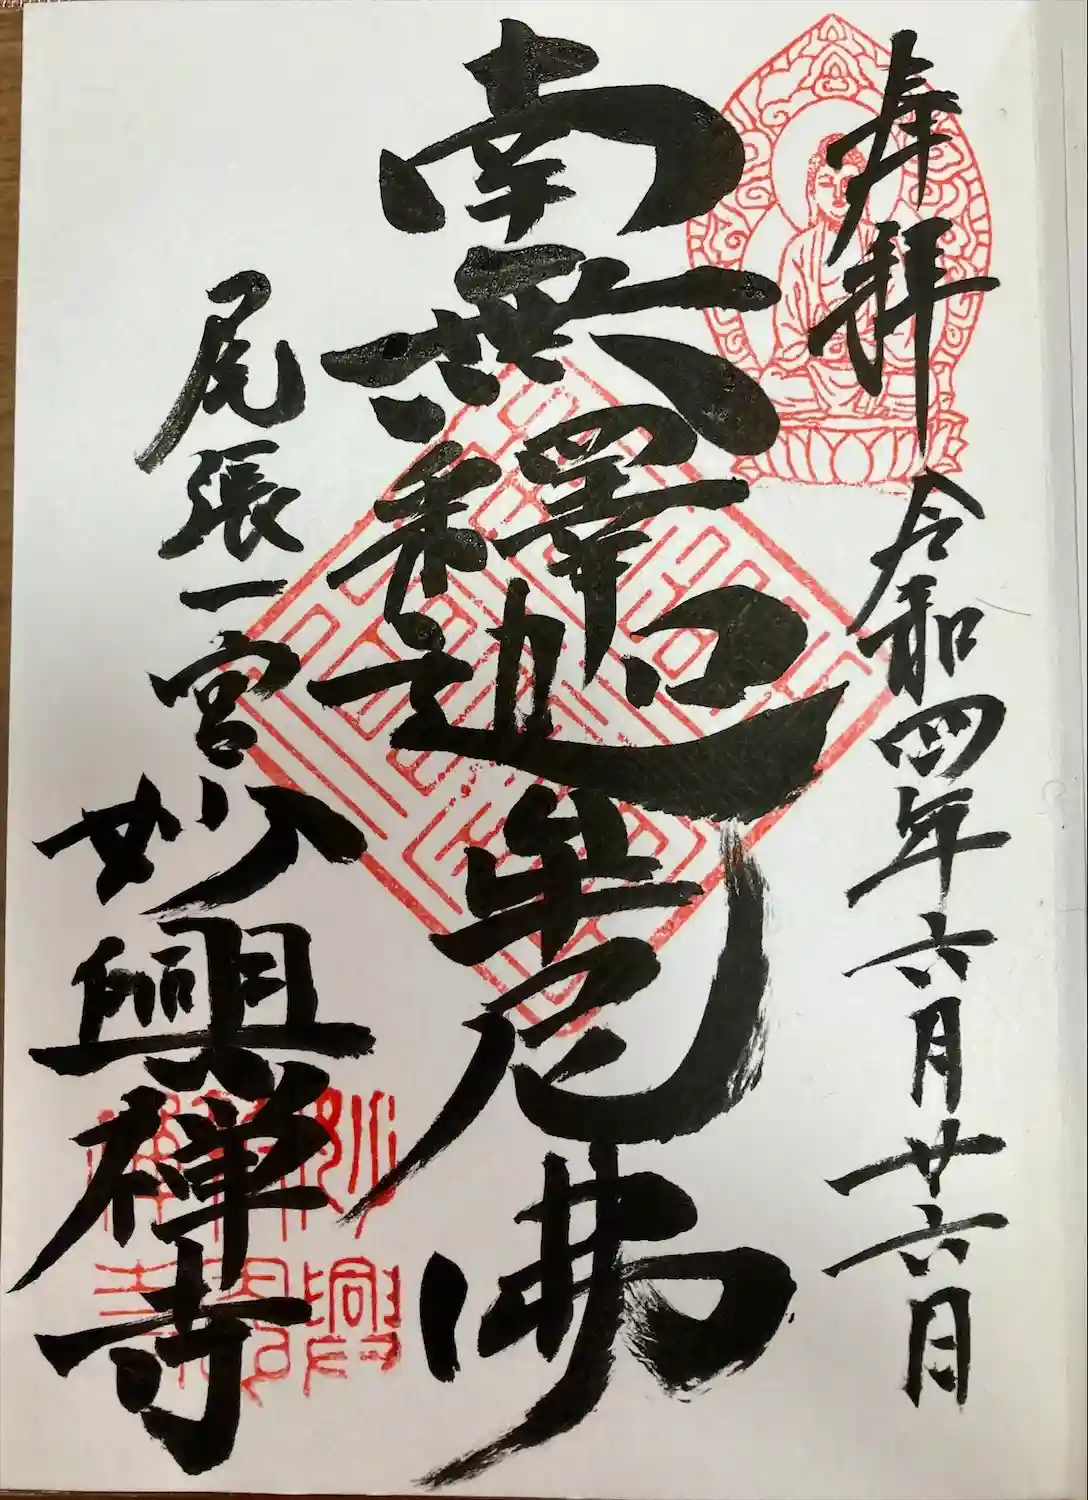 奉拝
令和四年六月廿六日
南無釋迦牟尼佛
尾張一宮
妙興禅寺